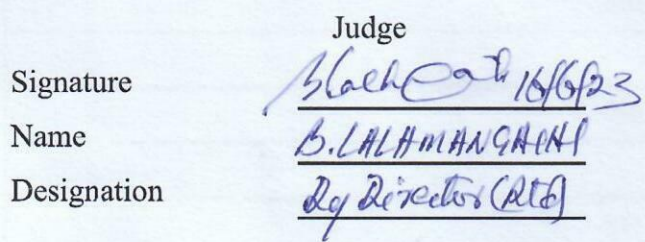 Judge
Signature 16/6/23
Name B. LALHMANGAIHI
Designation Dy Director (Rtd)